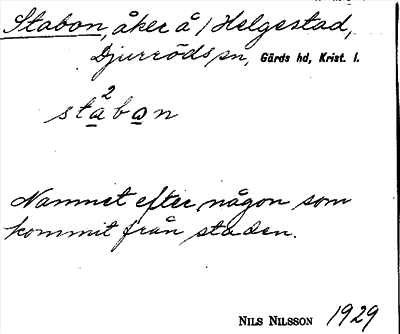 Stabon, åker å / Helgestad,
Djurröds sn, Gärds hd, Krist. l.
sta²bon
Namnet efter någon som
kommit från staden.
NILS NILSSON 1929